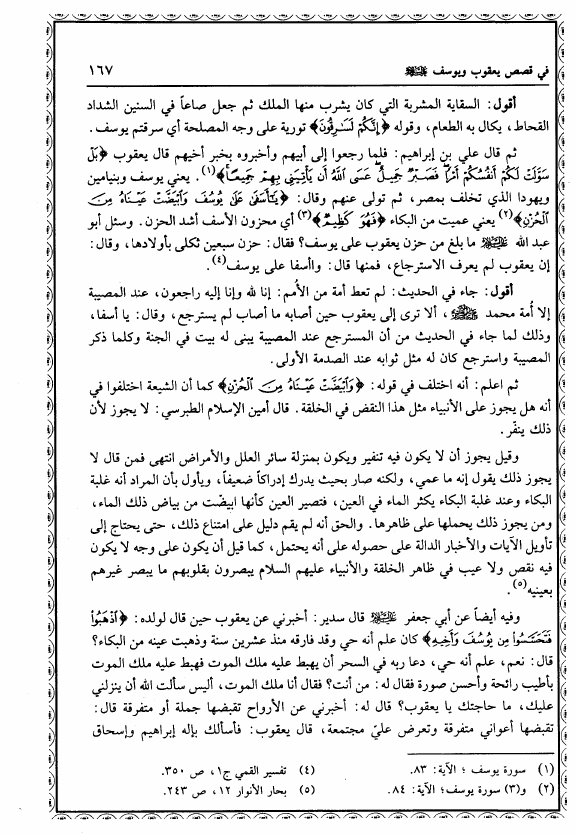 في قصص يعقوب ويوسف ﷺ ١٦٧
أقول: السقاية المشربة التي كان يشرب منها الملك ثم جعل صاعاً في السنين الشداد
القحاط، يكال به الطعام، وقوله ﴿إِنَّكُمْ لَسَارِقُونَ﴾ تورية على وجه المصلحة أي سرقتم يوسف.
ثم قال علي بن إبراهيم: فلما رجعوا إلى أبيهم وأخبروه بخبر أخيهم قال يعقوب ﴿بَلْ
سَوَّلَتْ لَكُمْ أَنْفُسُكُمْ أَمْرًا فَصَبْرٌ جَمِيلٌ عَسَى اللَّهُ أَن يَأْتِيَنِي بِهِمْ جَمِيعًا﴾(١). يعني يوسف وبنيامين
ويهودا الذي تخلف بمصر، ثم تولى عنهم وقال: ﴿يَا أَسَفَى عَلَى يُوسُفَ وَابْيَضَّتْ عَيْنَاهُ مِنَ
الْحُزْنِ﴾(٢) يعني عميت من البكاء ﴿فَهُوَ كَظِيمٌ﴾(٣) أي محزون الأسف أشد الحزن. وسئل أبو
عبد الله عليه السلام ما بلغ من حزن يعقوب على يوسف؟ فقال: حزن سبعين ثكلى بأولادها، وقال:
إن يعقوب لم يعرف الاسترجاع، فمنها قال: واأسفا على يوسف(٤).
أقول: جاء في الحديث: لم تعط أمة من الأُمم: إنا لله وإنا إليه راجعون، عند المصيبة
إلا أُمة محمد ﷺ، ألا ترى إلى يعقوب حين أصابه ما أصاب لم يسترجع، وقال: يا أسفا،
وذلك لما جاء في الحديث من أن المسترجع عند المصيبة يبنى له بيت في الجنة وكلما ذكر
المصيبة واسترجع كان له مثل ثوابه عند الصدمة الأولى.
ثم اعلم: أنه اختلف في قوله: ﴿وَابْيَضَّتْ عَيْنَاهُ مِنَ الْحُزْنِ﴾ كما أن الشيعة اختلفوا في
أنه هل يجوز على الأنبياء مثل هذا النقض في الخلقة. قال أمين الإسلام الطبرسي: لا يجوز لأن
ذلك ينفّر.
وقيل يجوز أن لا يكون فيه تنفير ويكون بمنزلة سائر العلل والأمراض انتهى فمن قال لا
يجوز ذلك يقول إنه ما عمي، ولكنه صار بحيث يدرك إدراكاً ضعيفاً، ويأول بأن المراد أنه غلبة
البكاء وعند غلبة البكاء يكثر الماء في العين، فتصير العين كأنها ابيضت من بياض ذلك الماء،
ومن يجوز ذلك يحملها على ظاهرها. والحق أنه لم يقم دليل على امتناع ذلك، حتى يحتاج إلى
تأويل الآيات والأخبار الدالة على حصوله على أنه يحتمل، كما قيل أن يكون على وجه لا يكون
فيه نقص ولا عيب في ظاهر الخلقة والأنبياء عليهم السلام يبصرون بقلوبهم ما يبصر غيرهم
بعينيه(٥).
وفيه أيضاً عن أبي جعفر عليه السلام قال سدير: أخبرني عن يعقوب حين قال لولده: ﴿اذْهَبُوا
فَتَحَسَّسُوا مِن يُوسُفَ وَأَخِيهِ﴾ كان علم أنه حي وقد فارقه منذ عشرين سنة وذهبت عينه من البكاء؟
قال: نعم، علم أنه حي، دعا ربه في السحر أن يهبط عليه ملك الموت فهبط عليه ملك الموت
بأطيب رائحة وأحسن صورة فقال له: من أنت؟ فقال أنا ملك الموت، أليس سألت الله أن ينزلني
عليك، ما حاجتك يا يعقوب؟ قال له: أخبرني عن الأرواح تقبضها جملة أو متفرقة قال:
تقبضها أعواني متفرقة وتعرض عليّ مجتمعة، قال يعقوب: فأسألك بإله إبراهيم وإسحاق
(١) سورة يوسف؛ الآية: ٨٣.
(٢) و(٣) سورة يوسف؛ الآية: ٨٤.
(٤) تفسير القمي ج١، ص ٣٥٠.
(٥) بحار الأنوار ١٢، ص ٢٤٣.